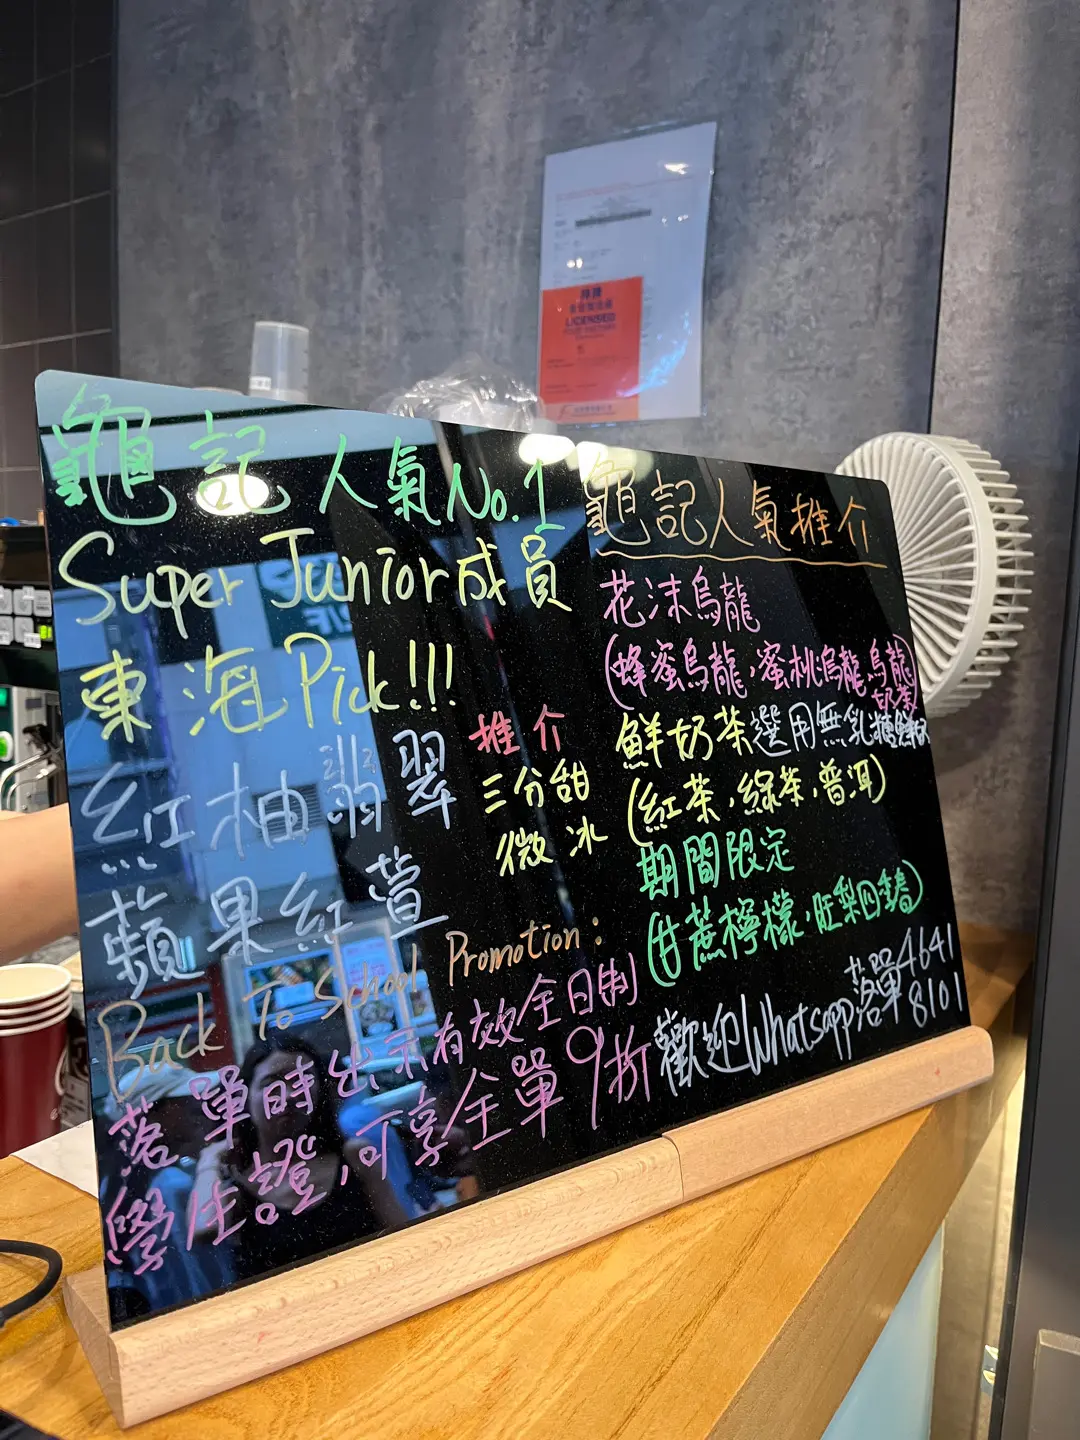 持牌
LICENSED
龜記人氣No.1
Super Junior成員
東海Pick!!!
紅柚翡翠
蘋果紅萱
推介
三分甜
微冰
Back To School Promotion:
落單時出示有效全日制
學生證,可享全單9折
龜記人氣推介
花沫烏龍
(蜂蜜烏龍,蜜桃烏龍,烏龍奶茶)
鮮奶茶選用無乳糖鮮奶
(紅茶,綠茶,普洱)
期間限定
(甘蔗檸檬,旺梨四季春)
歡迎Whatsapp落單4641
8101